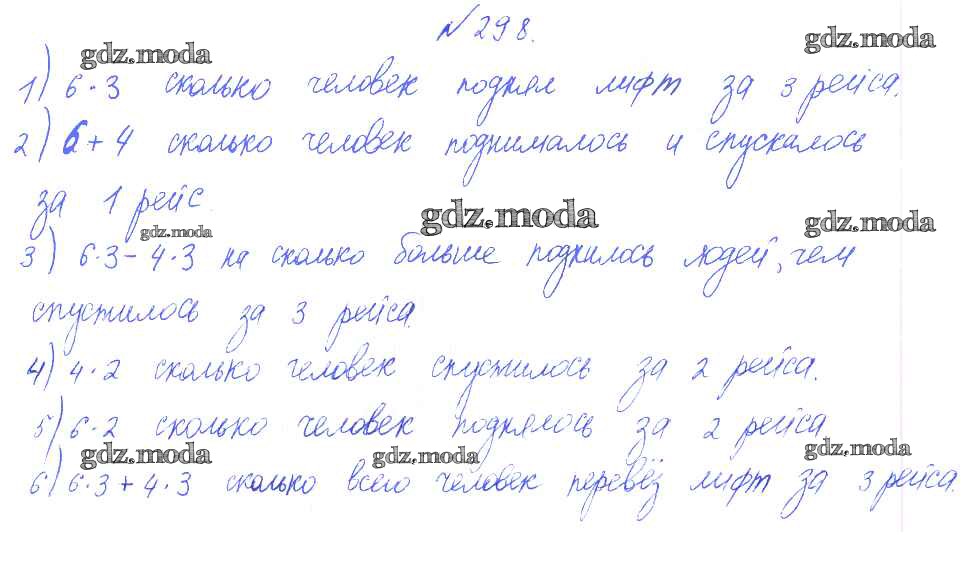 № 298.
gdz.moda
gdz.moda
1) 6·3 сколько человек поднял лифт за 3 рейса.
2) 6+4 сколько человек поднималось и спускалось
за 1 рейс.
gdz.moda
gdz.moda
gdz.moda
3) 6·3-4·3 на сколько больше поднилось людей, чем
спустилось за 3 рейса.
4) 4·2 сколько человек спустилось за 2 рейса.
5) 6·2 сколько человек поднялось за 2 рейса
gdz.moda
gdz.moda
gdz.moda
6) 6·3+4·3 сколько всего человек перевёз лифт за 3 рейса.